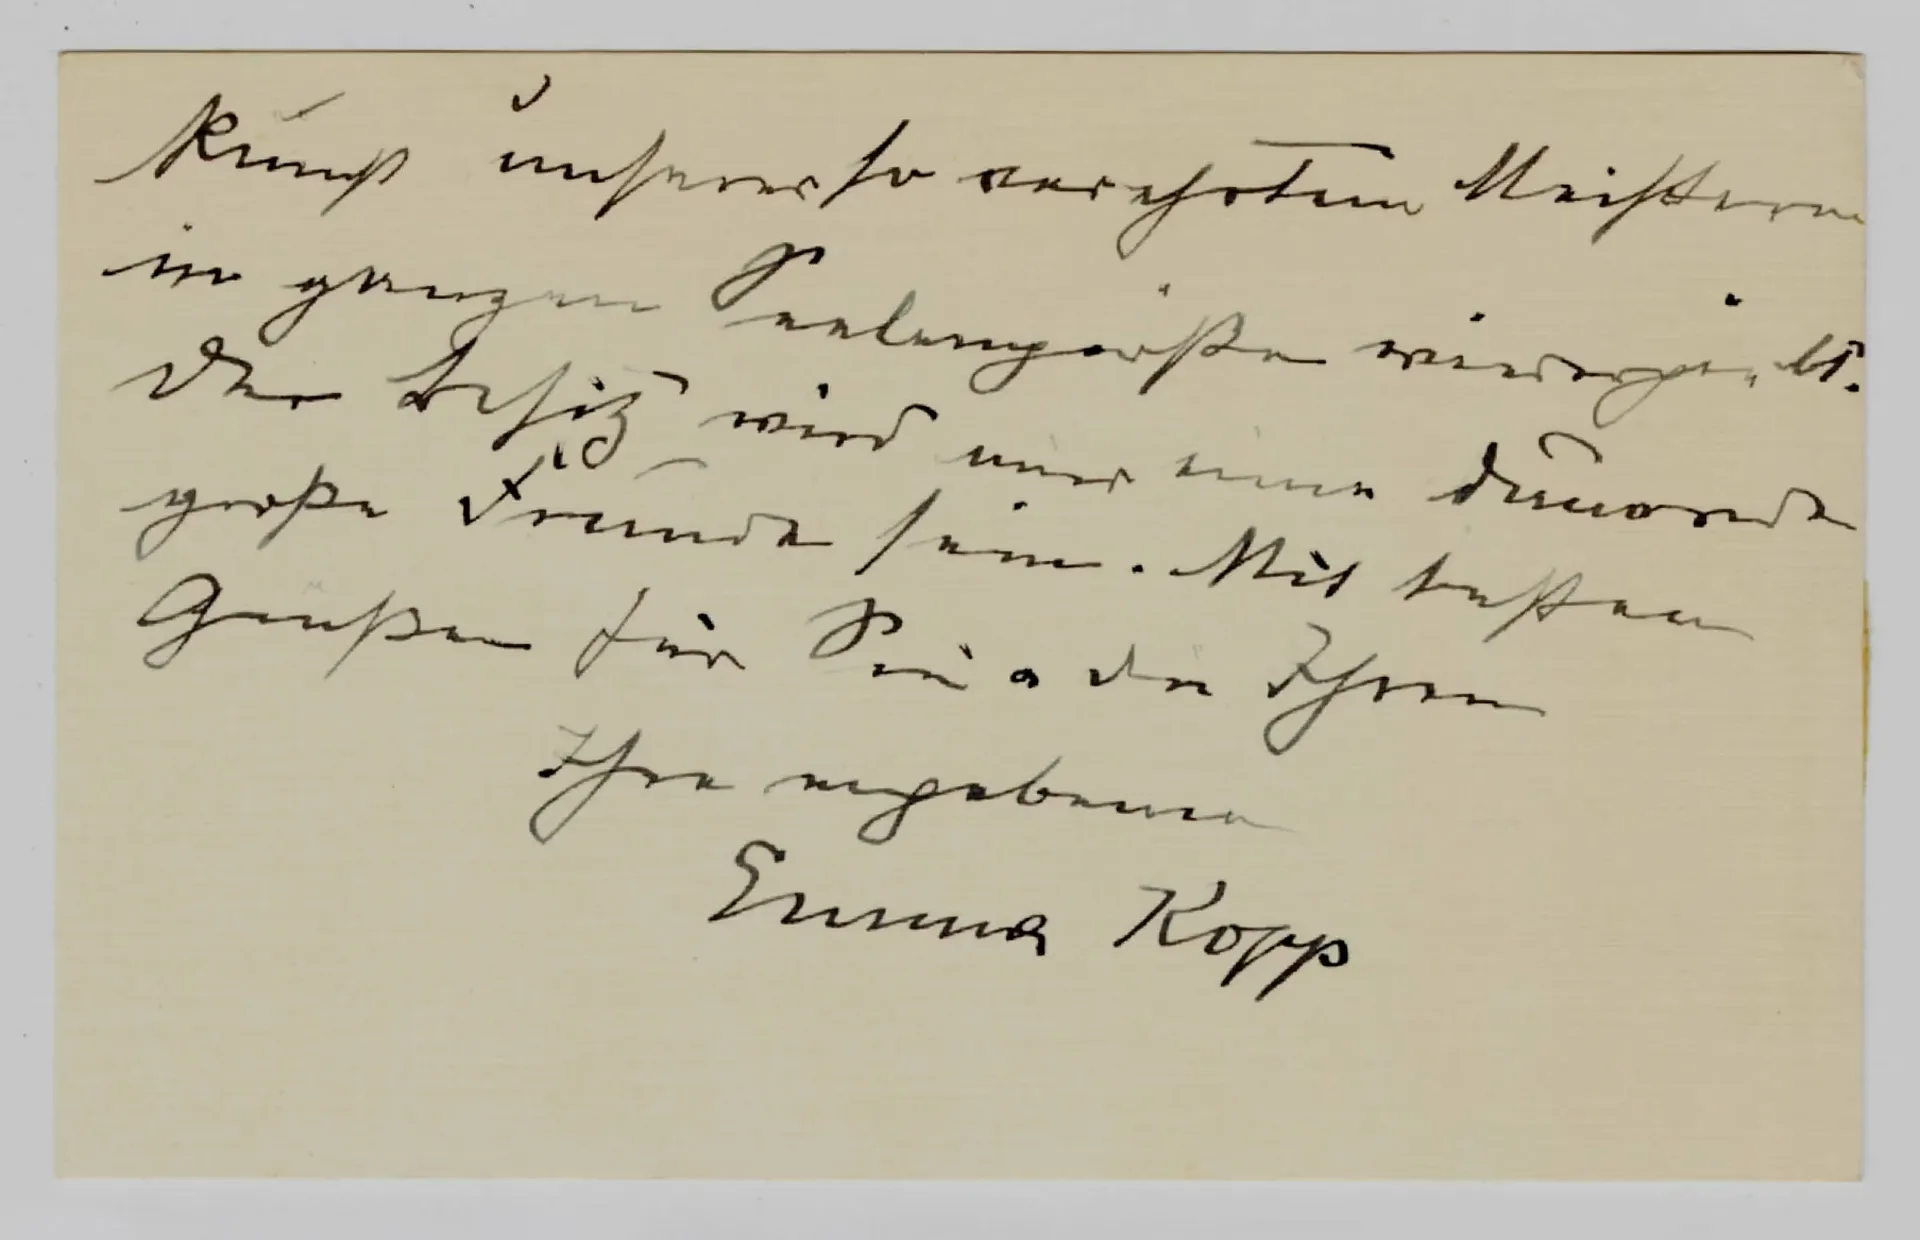 Kunst unserer so verehrten Meisterin
in ganzer Seelengröße wiedergibt.
Der Besitz wird mir eine dauernde
große Freude sein. Mit besten
Grüßen für Sie u. die Ihren
Ihre ergebene
Emma Kopp